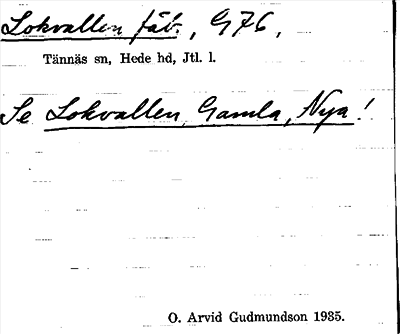 Lokvallen fäb., G76,
Tännäs sn, Hede hd, Jtl. l.
Se Lokvallen, Gamla, Nya!
O. Arvid Gudmundson 1935.